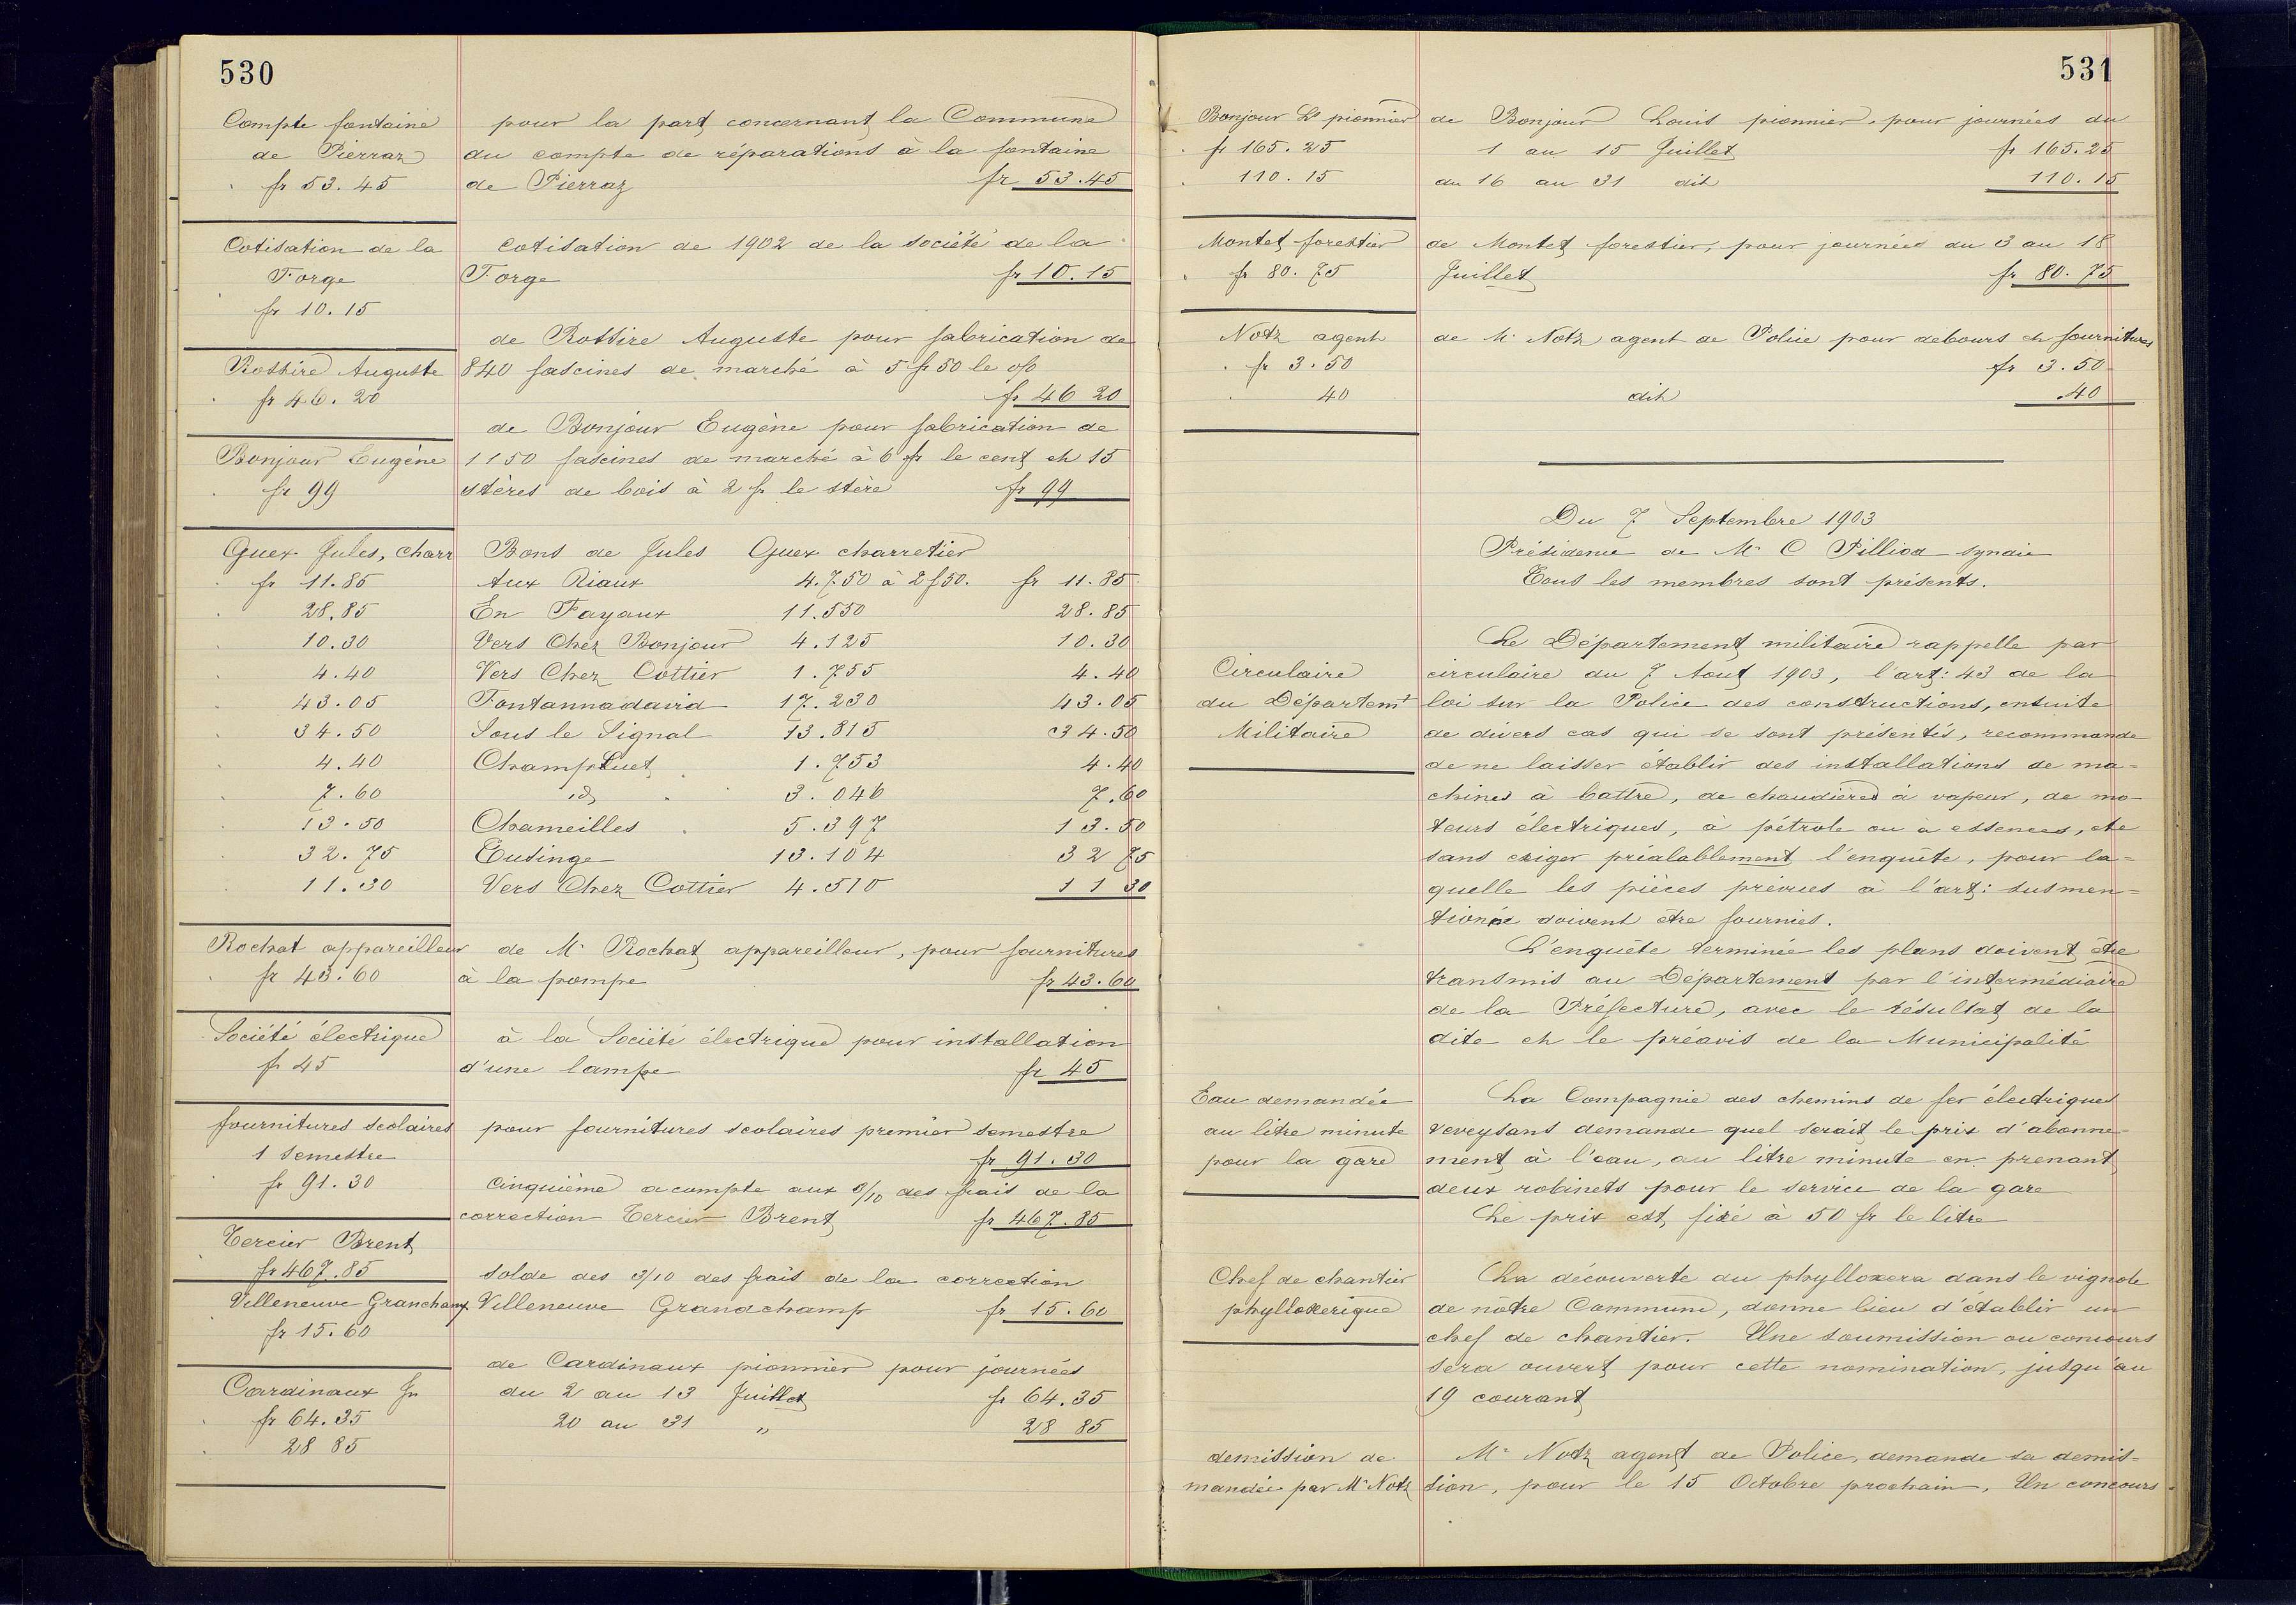 530
Compte fontaine
de Pierraz
fr 53.45
pour la part concernant la Commune
du compte de réparations à la fontaine
de Pierraz fr 53.45
Cotisation de la
Forge
fr 10.15
cotisation de 1902 de la société de la
Forge fr 10.15
Rossire Auguste
fr 46.20
de Rossire Auguste pour fabrication de
840 fascines de marché à 5 fr 50 le %
fr 46 20
Bonjour Eugène
fr 99
de Bonjour Eugène pour fabrication de
1150 fascines de marché à 6 fr le cent et 15
stères de bois à 2 fr le stère fr 99
Guex Jules, charr
fr 11.85
28.85
10.30
4.40
43.05
34.50
4.40
7.60
13.50
32.75
11.30
Bons de Jules Guex charretier
Aux Riaux 4.750 à 2 f 50. fr 11.85
En Fayaux 11.550 28.85
Vers Chez Bonjour 4.125 10.30
Vers Chez Cottier 1.755 4.40
Fontannadavid 17.230 43.05
Sous le Signal 13.815 34.50
Champluet 1.753 4.40
id 3.046 7.60
Chameilles 5.397 13.50
Eusinge 13.104 32 75
Vers Chez Cottier 4.510 11 30
Rochat appareilleur
fr 43.60
de Mr Rochat appareilleur, pour fournitures
à la pompe fr 43.60
Société électrique
fr 45
à la Société électrique pour installation
d'une lampe fr 45
fournitures scolaires
1 semestre
fr 91.30
pour fournitures scolaires premier semestre
fr 91.30
Tercier Brent
fr 467.85
cinquième acompte aux 8/10 des frais de la
correction Tercier Brent fr 467.85
Villeneuve Granchamp
fr 15.60
solde des 3/10 des frais de la correction
Villeneuve Grandchamp fr 15.60
Cardinaux Jn
fr 64.35
28 85
de Cardinaux pionnier pour journées
du 2 au 13 Juillet fr 64.35
20 au 31 " 28 85
531
Bonjour Ls pionnier
fr 165.25
110.15
de Bonjour Louis pionnier, pour journées du
1 au 15 Juillet fr 165.25
du 16 au 31 dit 110.15
Montet forestier
fr 80.75
de Montet forestier, pour journées du 3 au 18
Juillet fr 80.75
Notz agent
fr 3.50
40
de Mr Notz agent de Police pour debours et fournitures
fr 3.50
dit .40
Du 7 Septembre 1903
Présidence de Mr C Pilliod syndic
Tous les membres sont présents.
Circulaire
du Départemt
Militaire
Le Département militaire rappelle par
circulaire du 7 Aout 1903, l'art: 43 de la
loi sur la Police des constructions, ensuite
de divers cas qui se sont présentés, recommande
de ne laisser établir des installations de ma=
chines à battre, de chaudières à vapeur, de mo-
teurs électriques, à pétrole ou à essences, etc
sans exiger préalablement l'enquête, pour la=
quelle les pièces prévues à l'art: susmen=
tionné doivent être fournies.
L'enquête terminée les plans doivent être
transmis au Département par l'intermédiaire
de la Préfecture, avec le résultat de la
dite et le préavis de la Municipalité
Eau demandée
au litre minute
pour la gare
La Compagnie des chemins de fer électriques
veveysans demande quel serait le prix d'abonne-
ment à l'eau, au litre minute en prenant
deux robinets pour le service de la gare
Le prix est fixé à 50 fr le litre
Chef de chantier
phylloxerique
La découverte du phylloxera dans le vignoble
de nôtre Commune, donne lieu d'établir un
chef de chantier. Une soumission ou concours
sera ouvert pour cette nomination, jusqu'au
19 courant
demission de
mandée par Mr Notz
Mr Notz agent de Police, demande sa demis=
sion, pour le 15 Octobre prochain, Un concours